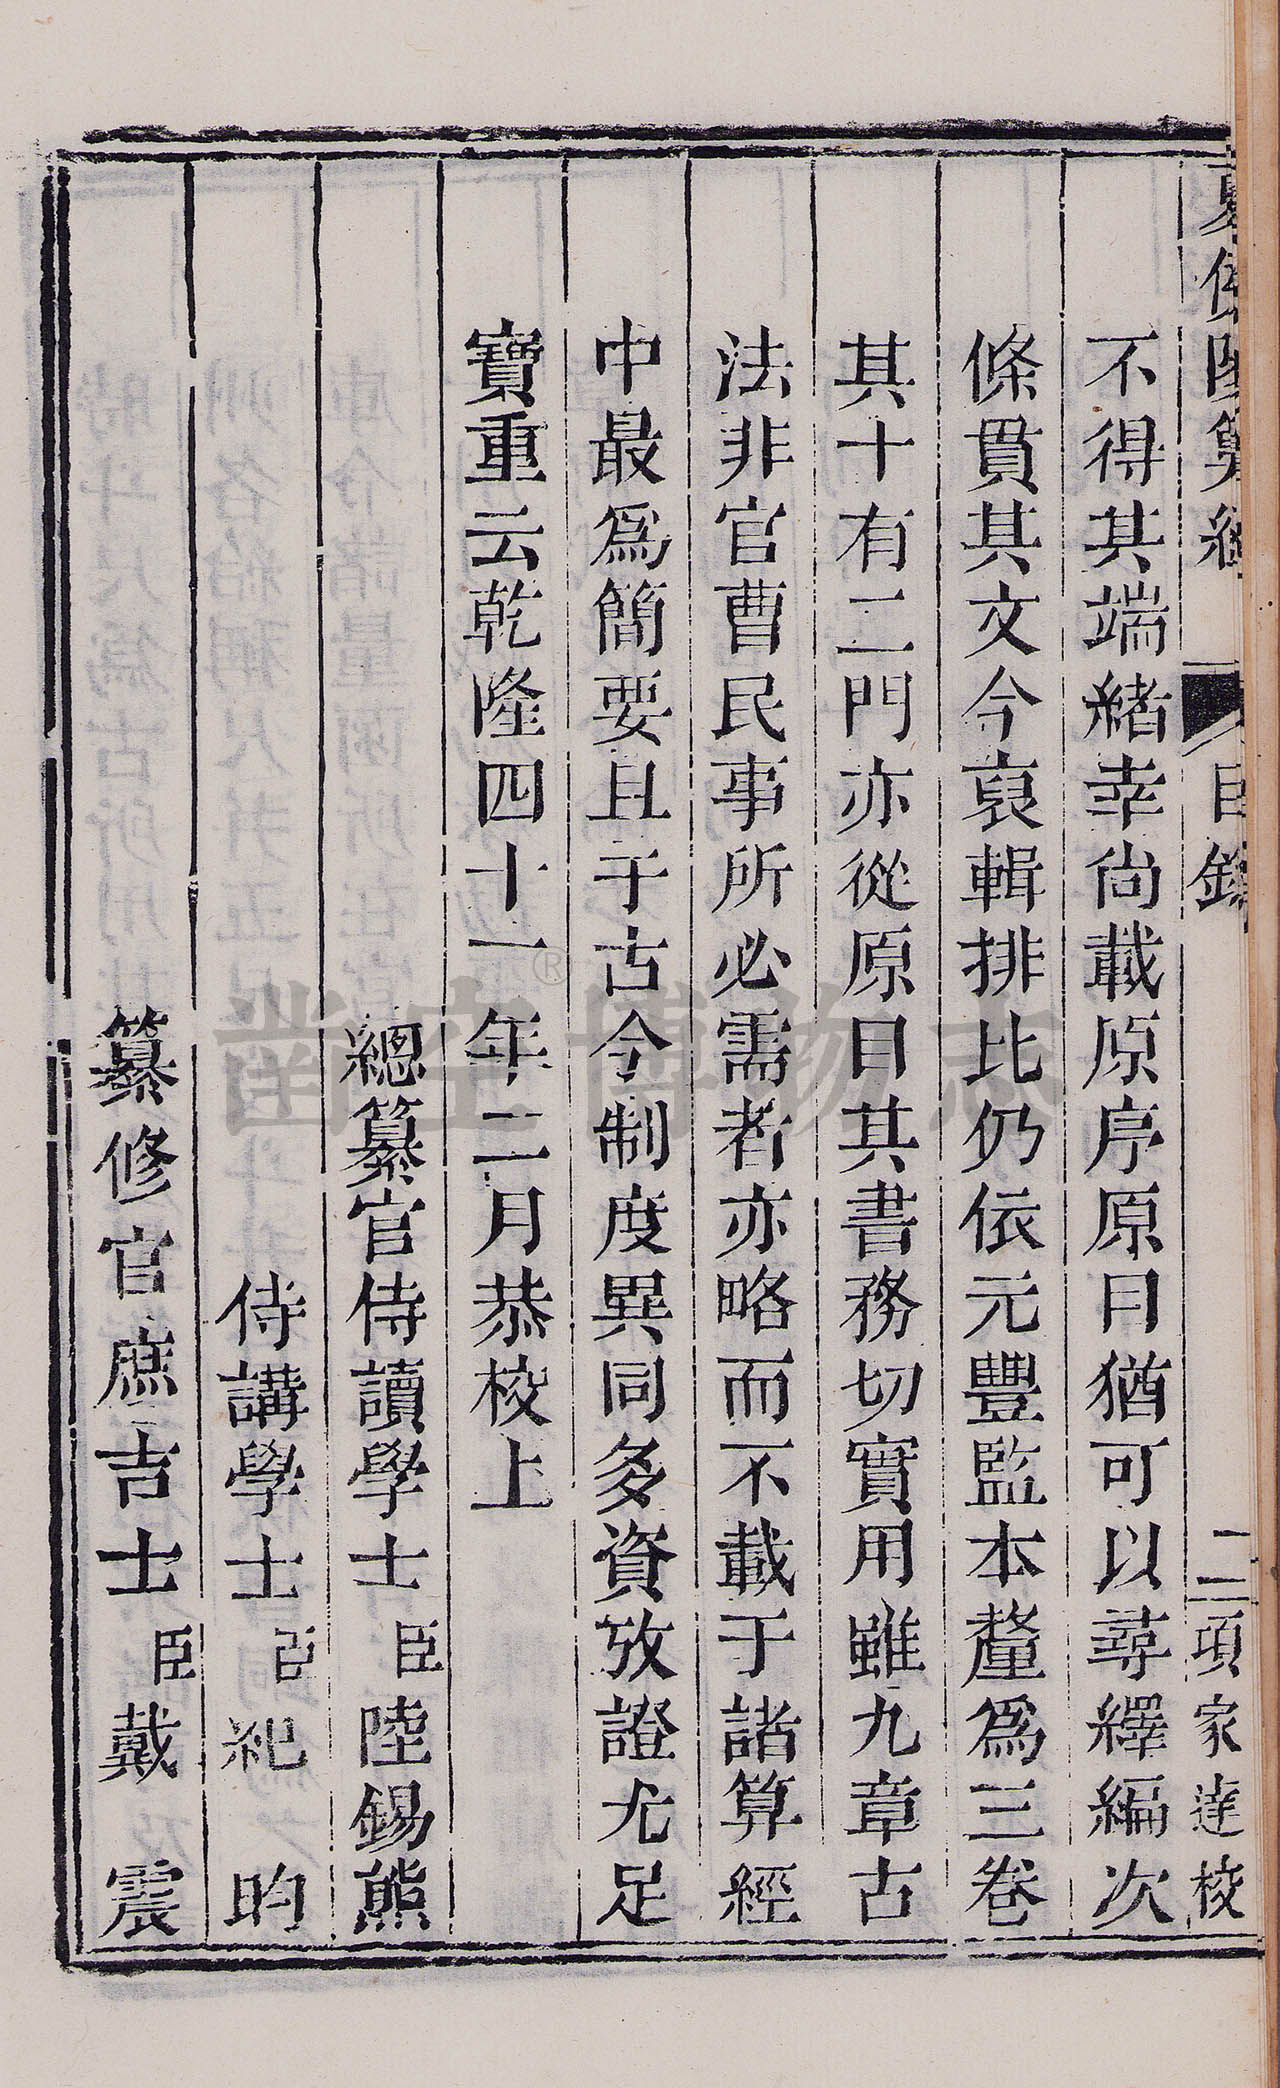 夏侯陽算經 目錄 二 項家達校
不得其端緒幸尚載原序原目猶可以尋繹編次
條貫其文今裒輯排比仍依元豐監本釐爲三卷
其十有二門亦從原目其書務切實用雖九章古
法非官曹民事所必需者亦略而不載于諸算經
中最爲簡要且于古今制度異同多資攷證尤足
寶重云乾隆四十一年二月恭校上
總纂官侍讀學士臣陸錫熊
侍講學士臣紀昀
纂修官庶吉士臣戴震
凿空博物志®